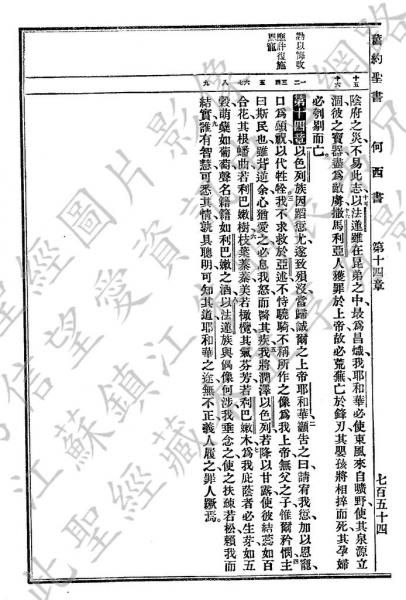 舊約聖書 何西書 第十四章 七百五十四
十五 陰府之災不易此志以法蓮雖在昆弟之中最爲昌熾我耶和華必使東風來自曠野使其泉源立
十六 涸彼之寶器盡爲敵虜撒馬利亞人獲罪於上帝故必荒蕪亡於鋒刃其嬰孩將相捽而死其孕婦
必刳剔而亡。
勸以悔改
一二 第十四章以色列族因蹈愆尤遂致殞沒當歸誠爾之上帝耶和華籲告之曰請宥我愆加以恩寵
三四 口爲頌祝以代牲牷我不求救於亞述不恃驍騎不稱所作之像爲我上帝無父之子惟爾矜憫主
應許復施
恩寵
五 曰斯民也雖背道余心猶愛之必息我怒而醫其疾我將潤澤以色列若降以甘露使彼結蕊如百
六七 合花其根蟠曲若利巴嫩樹枝葉蓁蓁美若橄欖其氣芬芳若利巴嫩木爲我庇蔭者必生芽如五
八 穀萌蘗如葡萄聲名籍籍如利巴嫩之酒以法蓮族與偶像何涉我垂念之使之扶疎若松賴我而
九 結實誰有智慧可悉其情孰具聰明可知其道耶和華之途無不正義人履之罪人蹶焉。
聖經圖片影像
信望愛資 網路
江蘇鎮江
此聖經藏